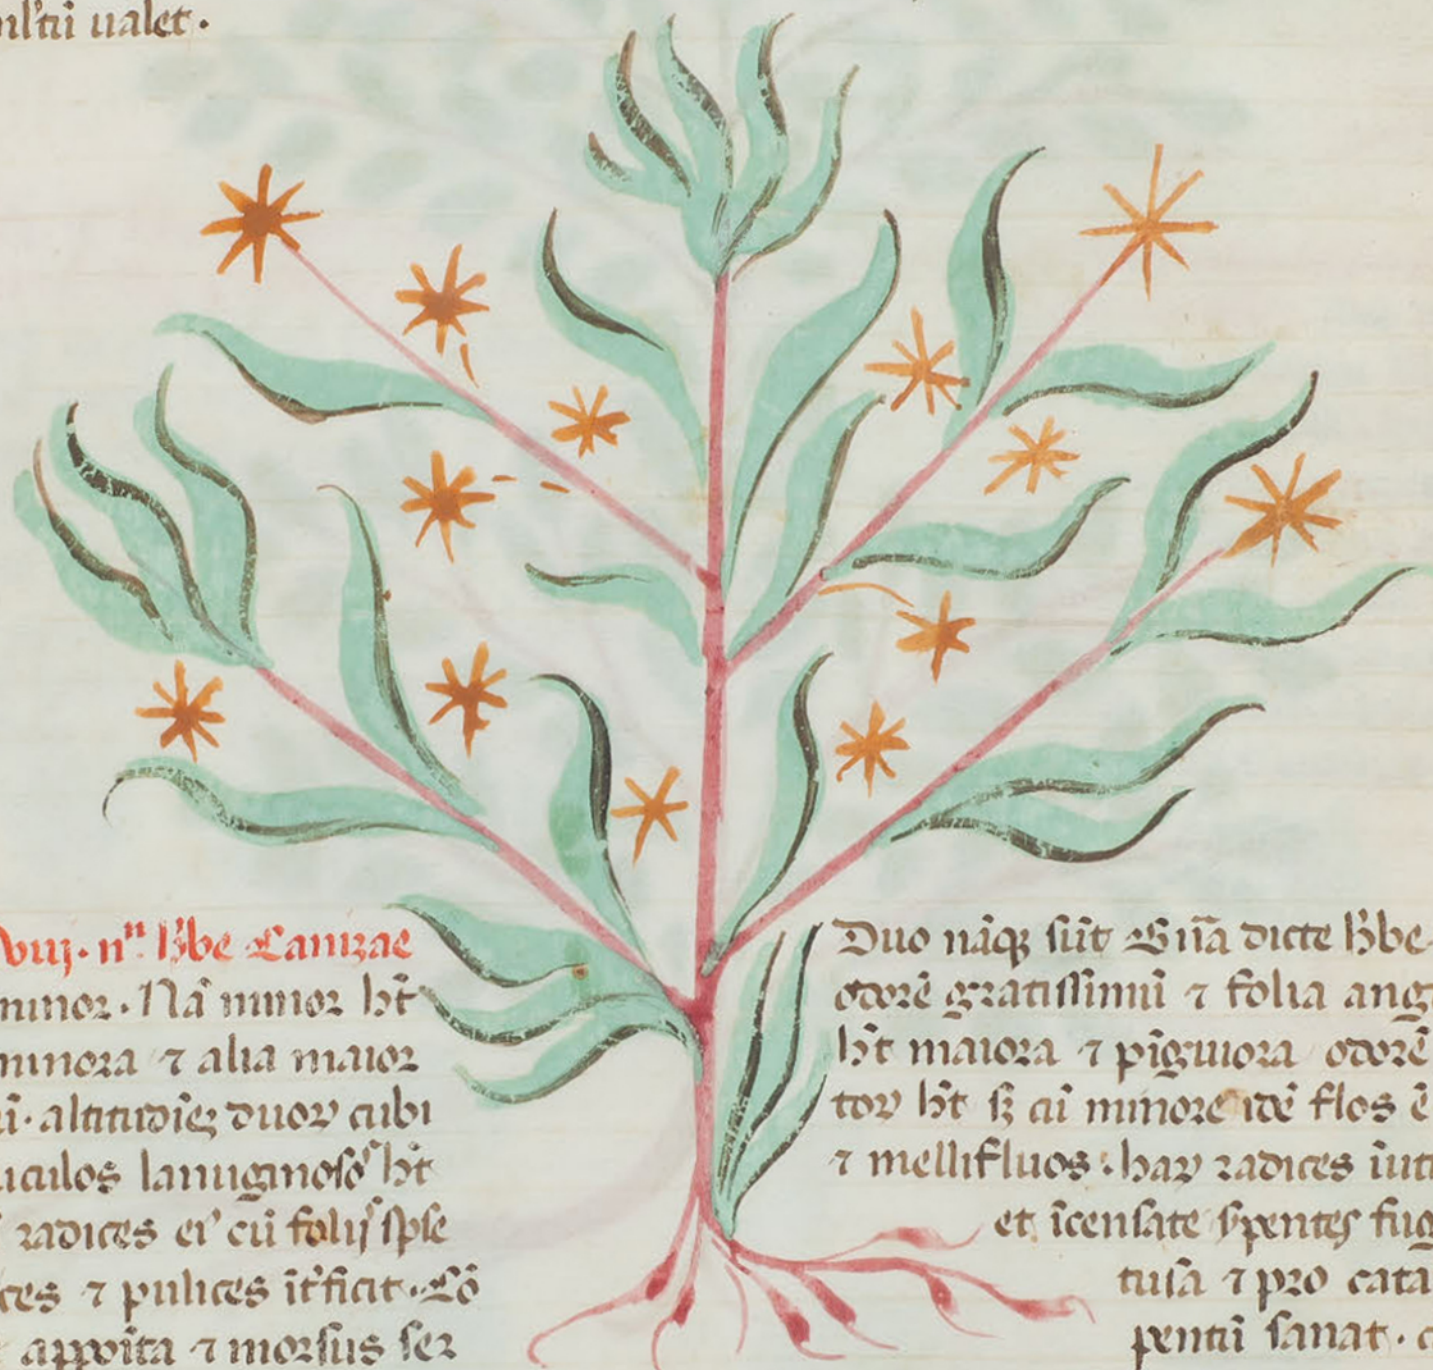 ualet.
viij. nⁿ. h̄be Canizae
minor. Nā minor h̄t
minora ⁊ alia maior
altitudīeꝫ duoꝝ cubi
lanuginosoˢ h̄t
radices eiꝰ cū folijˢ ipse
⁊ pulices īt'ficit. Cō
appoīta ⁊ morsus ser
Duo nāqꝫ sūt Gn̄a dicte h̄be
odorē gratissimū ⁊ folia ang
h̄t maiora ⁊ pīguiora odorē
toꝝ h̄t sꝫ cū minore idē flos ē
⁊ mellifluos: haꝝ radices iuti
et īcensate s̄pentes fug
tusa ⁊ pro cata
pentū sanat.